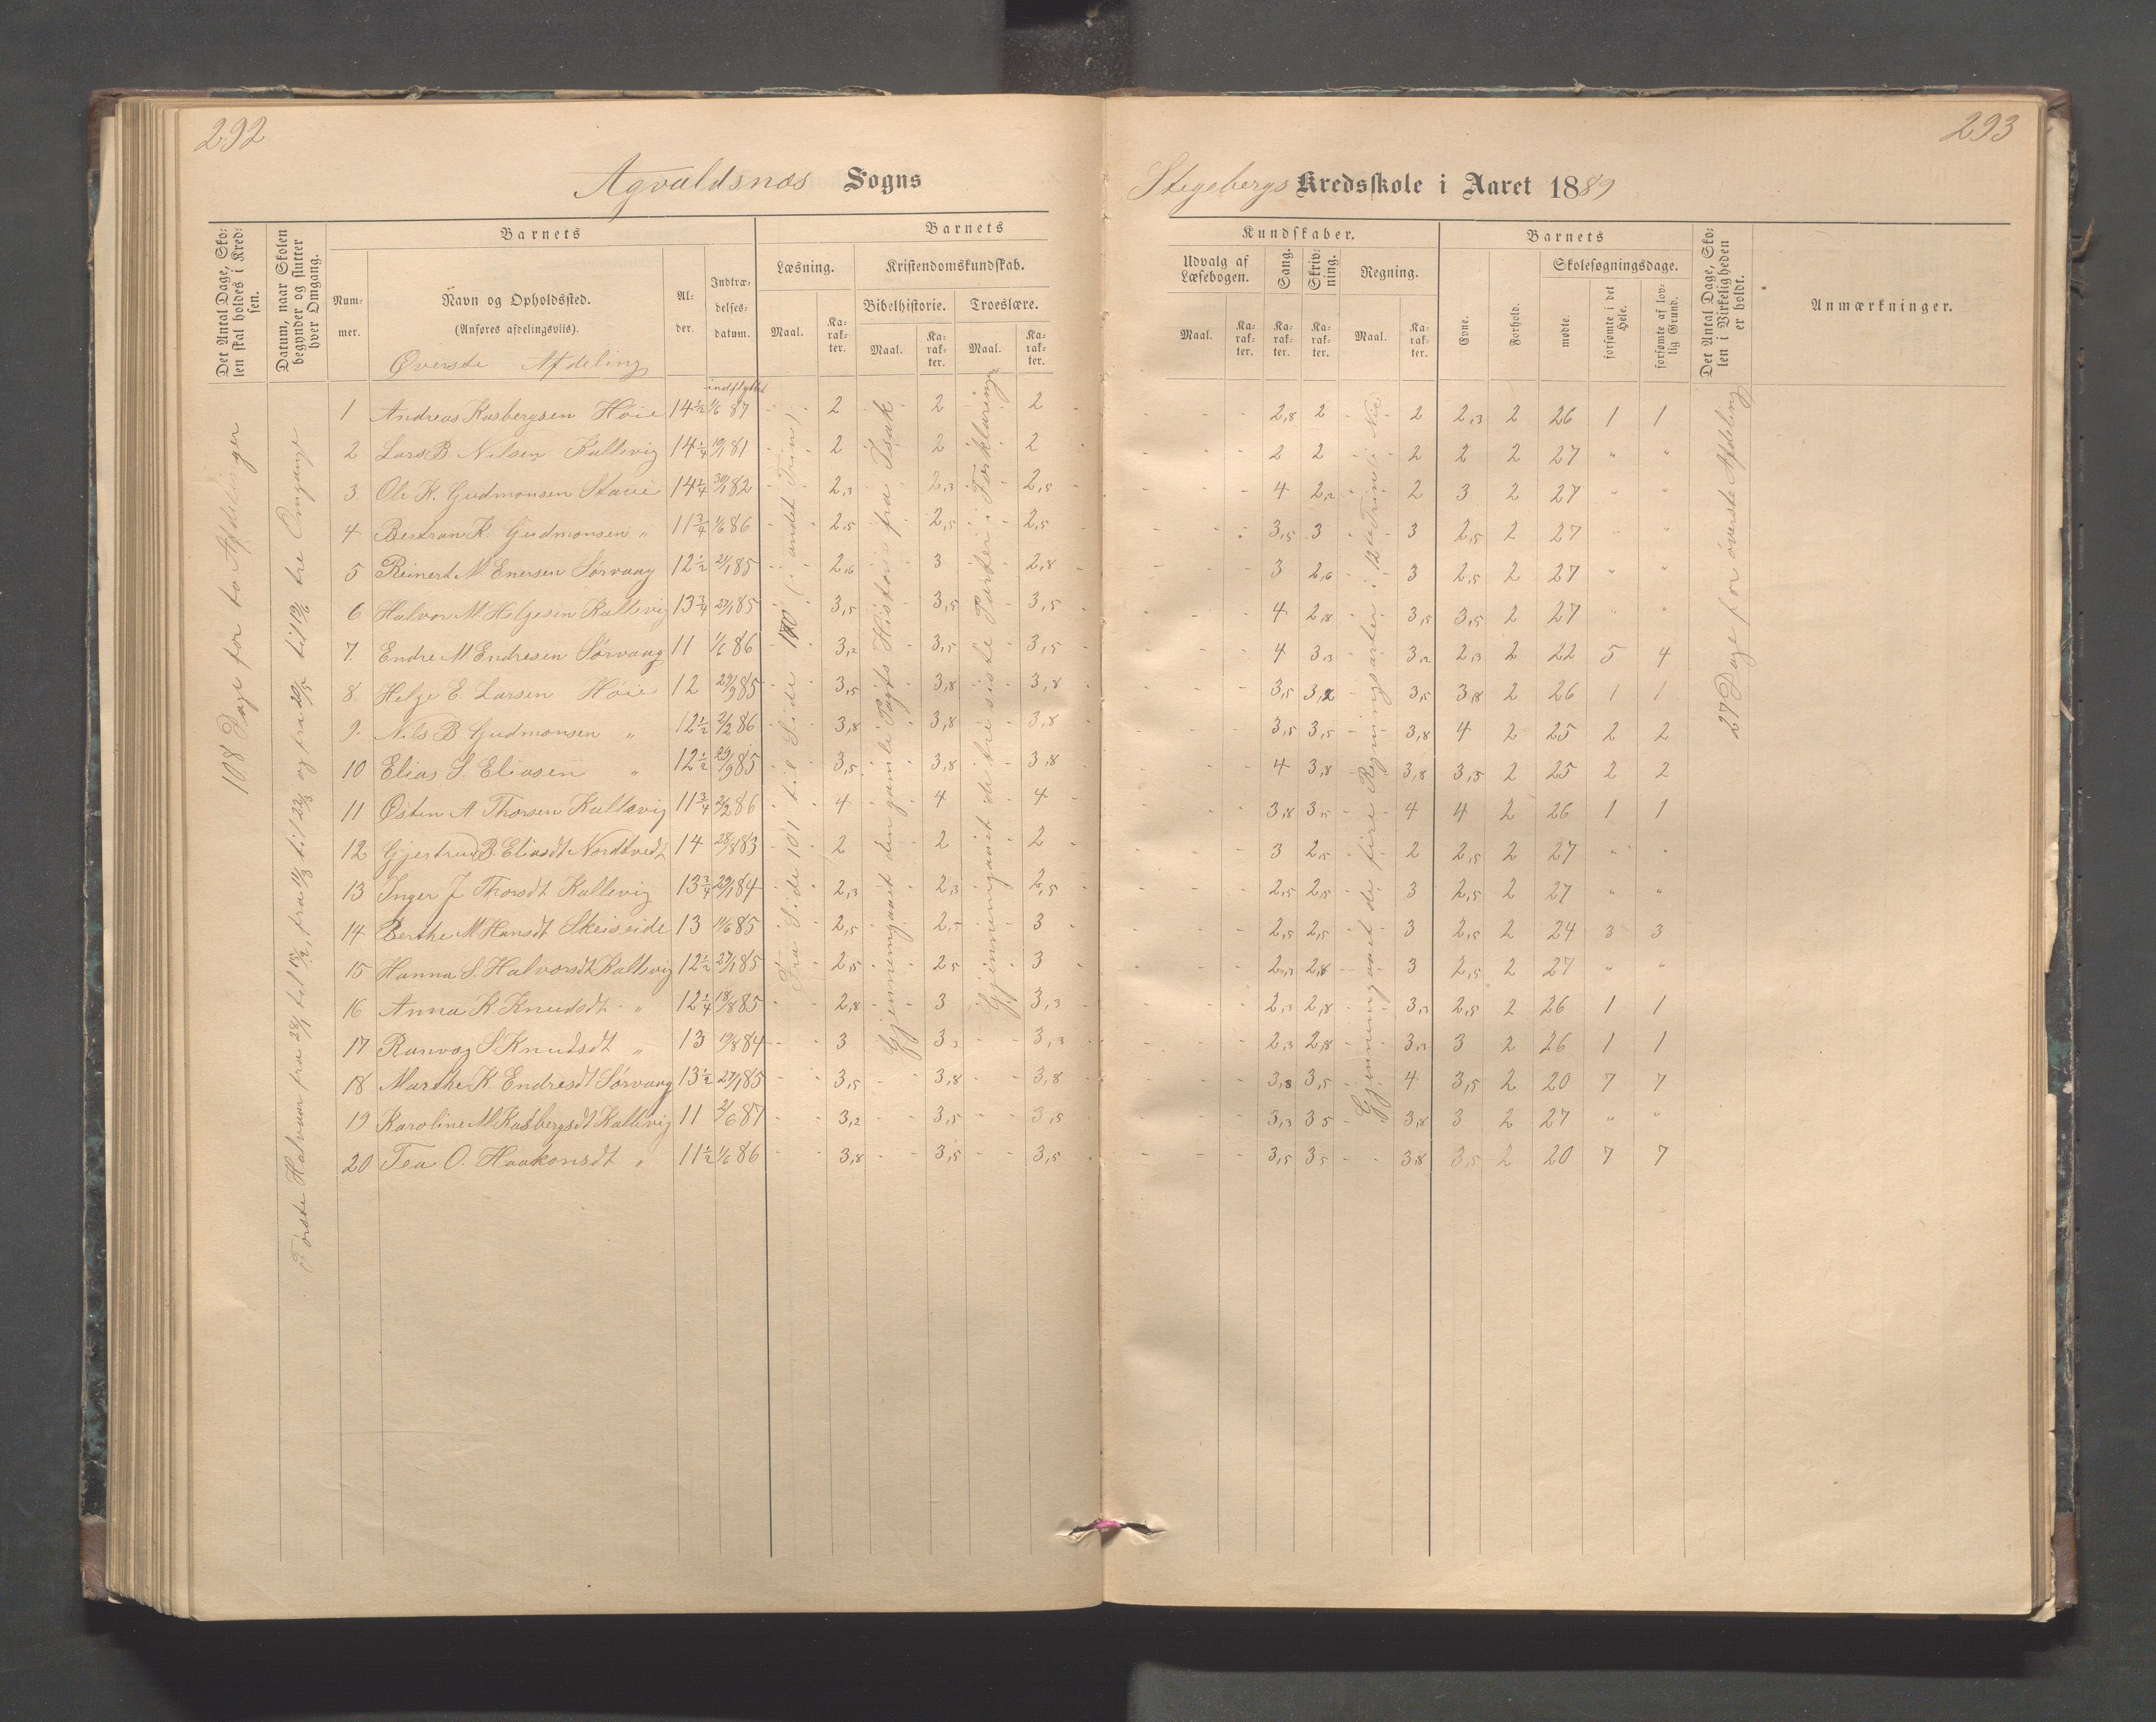 292
Agvaldsnæs Sogns
Det Antal Dage, Sko-
len skal holdes i Kred-
sen.
Datum, naar Skolen
begynder og slutter
hver Omgang.
Barnets
Num-
mer.
Navn og Opholdssted.
(Anføres afdelingsviis).
Øverste Afdeling
Al-
der.
Indtræ-
delses-
datum.
Barnets
Læsning.
Maal.
Ka-
rak-
ter.
Kristendomskundskab.
Bibelhistorie.
Maal.
Ka-
rak-
ter.
Troeslære.
Maal.
Ka-
rak-
ter.
indflyttet
108 Dage for to Afdelinger
Første Halvaar fra 28/1 til 13/2, fra 11/3 til 22/3 og fra 20/5 til 19/6 tre Omgange
Fra Side 101 til Side 170 (i andet Trin)
Gjennemgaaet den gamle Pagts Historie fra Isak
Gjennemgaaet de tre sidste Parter i Forklaringen
1 Andreas Kasbergsen Høie 14 1/2 1/6 87 2 2 2
2 Lars B. Nilsen Kallevig 14 1/4 19/1 81 2 2 2
3 Ole K. Gudmonsen Stave 14 1/4 30/1 82 2,3 2,3 2,5
4 Bertran K. Gudmonsen " 11 3/4 1/6 86 2,5 2,5 2,5
5 Reinert M. Enersen Sørvaag 12 1/2 21/1 85 2,6 3 2,8
6 Halvor M. Helgesen Kallevig 13 3/4 27/1 85 3,5 3,5 3,5
7. Endre M. Endresen Sørvaag 11 1/6 86 3,2 3,5 3,5
8. Helge E Larsen Høie 12 29/9 85 3,5 3,8 3,8
9. Nils B Gudmonsen " 12 1/2 2/2 86 3,8 3,8 3,8
10 Elias S. Eliasen " 12 1/2 29/9 85 3,5 3,8 3,8
11 Østen A Thorsen Kallevig 11 3/4 2/2 86 4 4 4
12 Gjertrud B. Eliasdt Nordtvedt 14 28/8 83 2 2 2
13 Inger J Thorsdt Kallevig 13 3/4 29/1 84 2,3 2,3 2,5
14 Berthe M Hansdt Skeiseide 13 11/6 85 2,5 2,5 3
15 Hanna S. Halvorsdt Kallevig 12 1/2 27/1 85 2,5 2,5 3
16 Anna K. Knudsdt " 12 1/4 18/8 85 2,8 3 3,3
17 Ranvag S Knudsdt " 13 19/8 84 3 3,3 3,3
18 Marthe K. Endresdt Sørvaag 13 1/2 27/1 85 3,5 3,8 3,8
19 Karoline M Kasbergsdt Kallevig 11 2/6 87 3,2 3,5 3,5
20 Tea O. Haakonsdt " 11 1/2 1/6 86 3,8 3,5 3,5
293
Stegebergs Kredsskole i Aaret 1889
Kundskaber.
Udvalg af
Læsebogen.
Maal.
Ka-
rak-
ter.
Sang.
Ka-
rak-
ter.
Skriv-
ning.
Ka-
rak-
ter.
Regning.
Maal.
Ka-
rak-
ter.
Barnets
Evne.
Forhold.
Skolesøgningsdage.
mødte.
forsømte i det
Hele.
forsømte af lov-
lig Grund.
Det Antal Dage, Sko-
len i Virkeligheden
er holdt.
Anmærkninger.
Gjennemgaaet de fire Regningsarter i
27 Dage for øverste Afdeling
2,8 2 2 2,3 2 26 1 1
2 2 2 2 2 27 " "
4 2,2 2 3 2 27 " "
3,5 3 3 2,5 2 27 " "
3 2,6 3 2,5 2 27 " "
4 2,8 3,5 3,5 2 27 " "
4 3,3 3,2 2,3 2 22 5 4
3,5 3,2 3,5 3,8 2 26 1 1
3,5 3,5 3,8 4 2 25 2 2
4 3,8 3,8 3,5 2 25 2 2
3,8 3,5 4 4 2 26 1 1
3 2,5 2 2,5 2 27 " "
2,5 2,5 3 2,5 2 27 " "
2,5 2,5 3 2,5 2 24 3 3
2,3 2,8 3 2,5 2 27 " "
2,3 2,8 3,3 2,5 2 26 1 1
2,3 2,8 3,3 3 2 26 1 1
3,8 3,5 4 3,5 2 20 7 7
3,3 3,5 3,8 3 2 27 " "
3,5 3,5 3,8 3,5 2 20 7 7